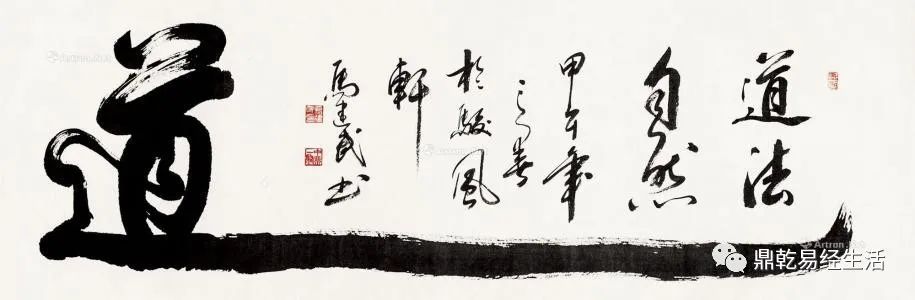 道法
自然
甲午年
之春
於駿風
軒
馬建民书
道
Artron.Net
鼎乾易经生活